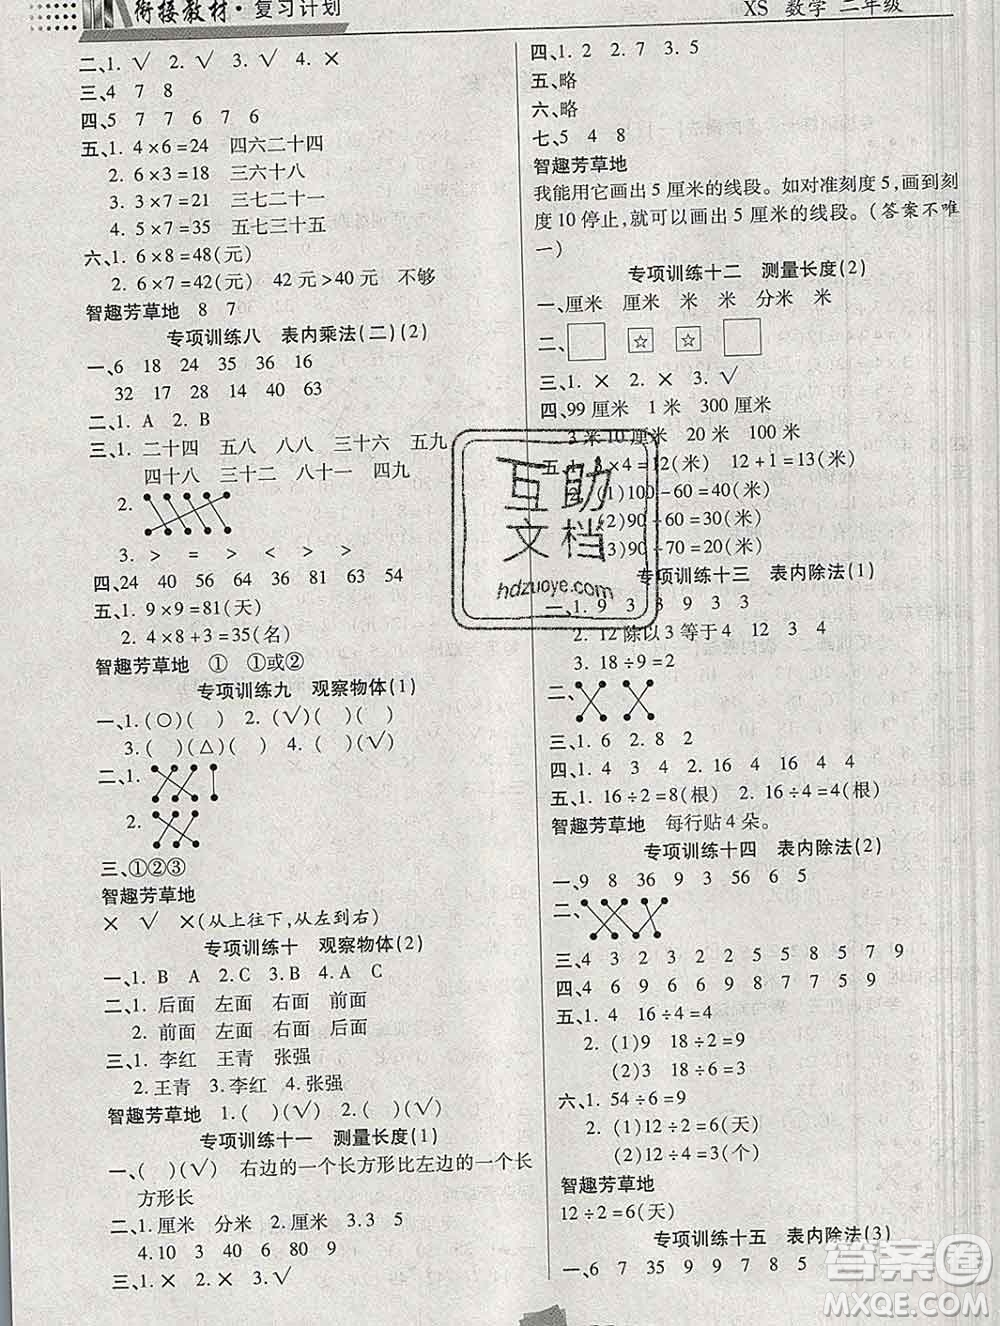 衔接教材·复习计划
XS 数学 二年级
二、1. √ 2. √ 3. √ 4. ×
三、4 7 8
四、5 7 7 6 7 6
五、1. 4×6=24 四六二十四
2. 6×3=18 三六十八
3. 3×7=21 三七二十一
4. 5×7=35 五七三十五
六、1. 6×8=48(元)
2. 6×7=42(元) 42元>40元 不够
智趣芳草地 8 7
专项训练八 表内乘法(二)(2)
一、6 18 24 35 36 16
32 17 28 14 40 63
二、1. A 2. B
三、1. 二十四 五八 八八 三十六 五九
四十八 三十二 八十一 四九
2.
3. > = > < > <
四、24 40 56 64 56 31 63 54
五、1. 9×9=81(天)
2. 4×8+3=35(名)
智趣芳草地 ① ①或②
专项训练九 观察物体(1)
一、1. (○)( ) 2. (√)( )
3. ( )(△)( ) 4. ( )(√)
二、1.
2.
三、①②③
智趣芳草地
× √ ×(从上往下,从左到右)
专项训练十 观察物体(2)
一、1. B A 2. C B 3. B A C
二、1. 后面 左面 右面 前面
2. 前面 左面 右面 后面
三、1. 李红 王青 张强
2. 王青 3. 李红 4. 张强
智趣芳草地 1. ( )(√) 2. (√)( )
专项训练十一 测量长度(1)
一、( )(√) 右边的一个长方形比左边的一个长
方形长
二、1. 厘米 分米 2. 厘米 3. 3 5
4. 10 3 40 6 80
三、1. × 2. √ 3. √ 4. ×
四、1. 2 2. 7 3. 5
五、略
六、略
七、5 4 8
智趣芳草地
我能用它画出5厘米的线段。如对准刻度5,画到刻
度10停止,就可以画出5厘米的线段。(答案不唯
一)
专项训练十二 测量长度(2)
一、厘米 厘米 米 米 分米 米
二、□ ☆ ☆ □
三、1. × 2. × 3. √
四、99厘米 1米 300厘米
3米10厘米 20米 100米
五、1. 3×4=12(米) 12+1=13(米)
2. (1)100-60=40(米)
(2)90-60=30(米)
(3)90-70=20(米)
专项训练十三 表内除法(1)
一、1. 9 3 3 9 3 3
2. 12除以3等于4 12 3 4
3. 18÷9=2
二、
三、1. 6 2. 8 2
四、1. 4 3 4 2. 16 4 16 4 4
五、1. 16÷2=8(根) 2. 16÷4=4(根)
智趣芳草地 每行贴4朵。
专项训练十四 表内除法(2)
一、9 8 36 9 3 56 6 5
二、
三、4 3 2 3 2 2 5 8 5 7 9
四、4 9 9 4 6 5 8 7 9
五、1. 4 16÷4=4
2. (1)9 18÷2=9
(2)3 18÷6=3
六、1. 54÷6=9
2. (1)12÷2=6(天)
(2)12÷4=3(个)
智趣芳草地
12÷2=6(天)
专项训练十五 表内除法(3)
一、6 7 35 9 9 7 8 5
互助
文档
hdzuoye.com
答案圈
MXQE.COM